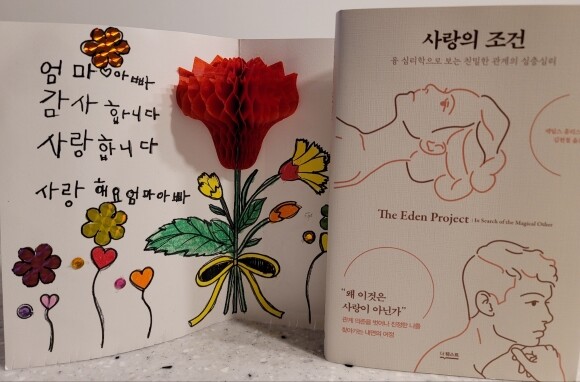 엄마아빠
감사합니다
사랑합니다
사랑해요엄마아빠
사랑의 조건
융 심리학으로 보는 친밀한 관계의 심층심리
제임스 홀리스
The Eden Project : In Search of the Magical Other
"왜 이것은
사랑이 아닌가"
관계 의존을 벗어나 진정한 나를
찾아가는 내면의 여정